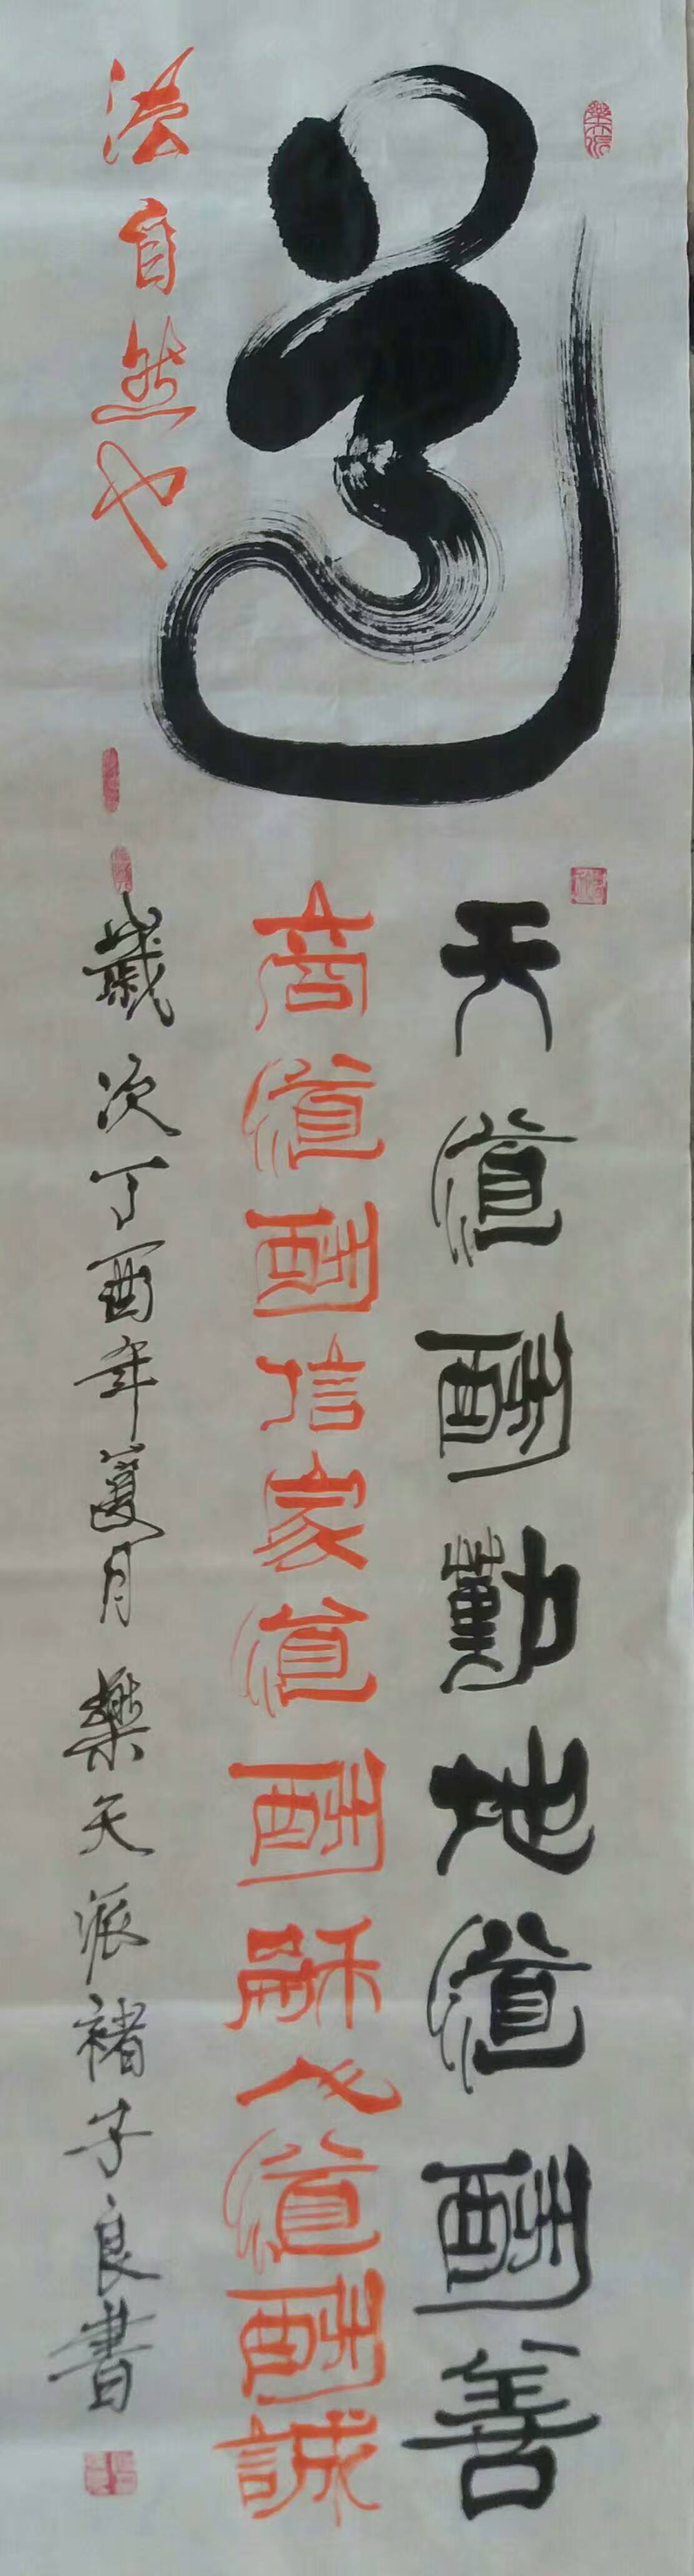 道
法自然也
天道酬勤地道酬善
商道酬信家道酬龢人道酬誠
歲次丁酉年夏月 樂天派褚子良書
樂天派